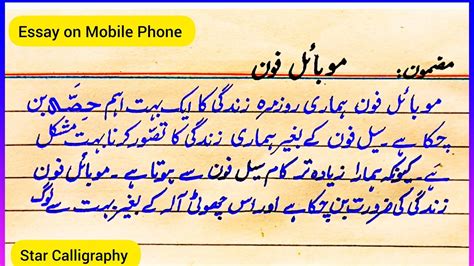 Essay on Mobile Phone
مضمون: موبائل فون
موبائل فون ہماری روزمرہ زندگی کا ایک بہت اہم حِصّہ بن
چکا ہے۔ سیل فون کے بغیر ہماری زندگی کا تصّور کرنا بہت مشکل
ہے۔ کیونکہ ہمارا زیادہ تر کام سیل فون سے ہوتا ہے۔ موبائل فون
زندگی کی ضرورت بن چکا ہے اور اس چھوٹی آلہ کے بغیر بہت سے لوگ
Star Calligraphy